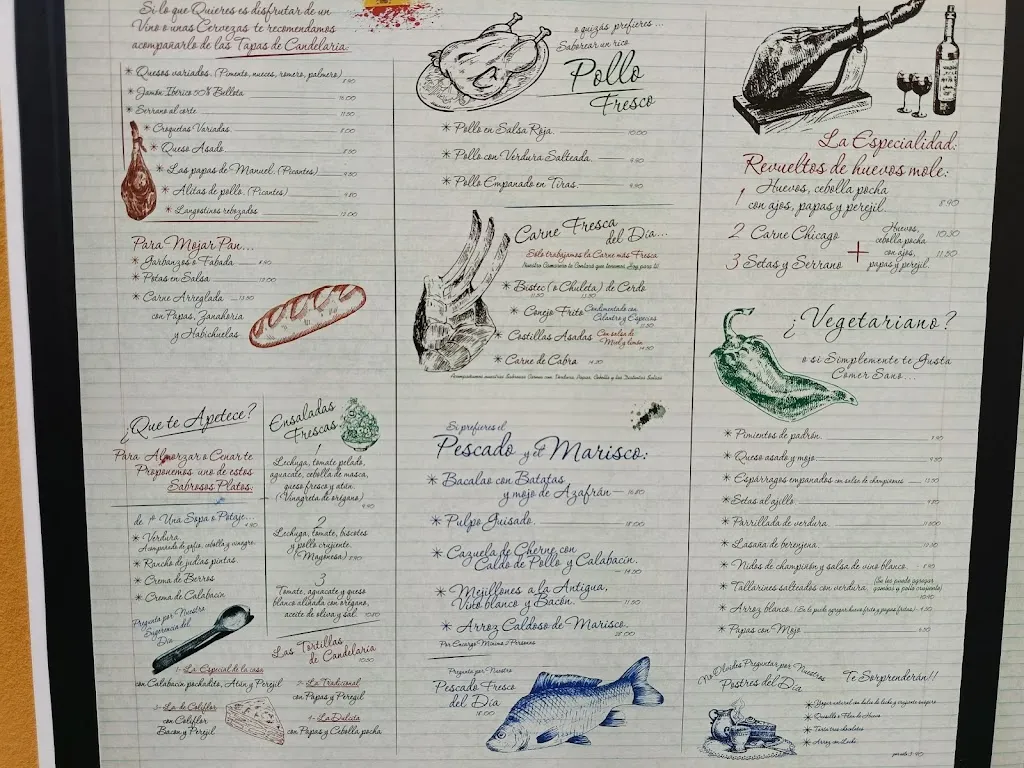 Si lo que Quieres es disfrutar de un
Vino o unas Cervezas te recomendamos
acompañarlo de las Tapas de Candelaria:
* Quesos variados. (Pimento, nueces, romero, palmero)
* Jamón Ibérico 50% Bellota
* Serrano al corte
* Croquetas Variadas
* Queso Asado
* Las papas de Manuel. (Picantes)
* Alitas de pollo. (Picantes)
* Langostinos rebozados 12.00
Para Mojar Pan...
* Garbanzos o Fabada
* Potas en Salsa 12.00
* Carne Arreglada
con Papas, Zanahoria
y Habichuelas
¿Que te Apetece?
Para Almorzar o Cenar te
Proponemos uno de estos
Sabrosos Platos:
de 1º Una Sopa o Potaje...
* Verdura.
Acompañado de gofio, cebolla y vinagre.
* Rancho de judías pintas.
* Crema de Berros
* Crema de Calabacín
Pregunta por Nuestra
Sugerencia del
Día
Ensaladas
Frescas
1
Lechuga, tomate pelado,
aguacate, cebolla de masca,
queso fresco y atún.
(Vinagreta de orégano)
9.90
2
Lechuga, tomate, biscotes
y pollo crujiente.
(Mayonesa)
3
Tomate, aguacate y queso
blanco aliñada con orégano,
aceite de oliva y sal.
Las Tortillas
de Candelaria
10.50
1- La Especial de la casa
con Calabacín pochadito, Atún y Perejil
2- La Tradicional
con Papas y Perejil
3- La de Coliflor
con Coliflor
Bacon y Perejil
4- La Dulcita
con Papas y Cebolla pocha
o quizás prefieres...
Saborear un rico
Pollo
Fresco
* Pollo en Salsa Roja. 10.00
* Pollo con Verdura Salteada. 9.90
* Pollo Empanado en Tiras. 9.90
Carne Fresca
del Día...
Sólo trabajamos la Carne más Fresca
Nuestro Camarero te Contará que tenemos Hoy para ti
* Bistec (o Chuleta) de Cerdo
* Conejo Frito Condimentado con
Cilantro y Especias
* Costillas Asadas Con salsa de
Miel y limón
* Carne de Cabra
Acompañamos nuestras Sabrosas Carnes con Verdura, Papas, Cebolla y las Distintas Salsas
Si prefieres el
Pescado y el Marisco:
* Bacalao con Batatas
y mojo de Azafrán 16.80
* Pulpo Guisado. 18.00
* Cazuela de Cherne con
Caldo de Pollo y Calabacín.
* Mejillones a la Antigua,
Vino blanco y Bacón.
* Arroz Caldoso de Marisco.
Por Encargo Mínimo 2 Personas
Pregunta por Nuestro
Pescado Fresco
del Día
18.00
La Especialidad:
Revueltos de huevos mole:
1 Huevos, cebolla pocha
con ajos, papas y perejil. 8.90
2 Carne Chicago
3 Setas y Serrano
+
Huevos,
cebolla pocha
con ajos,
papas y perejil.
10.50
11.50
¿Vegetariano?
o si Simplemente te Gusta
Comer Sano...
* Pimientos de padrón.
* Queso asado y mojo.
* Espárragos empanados con salsa de champiñones
* Setas al ajillo.
* Parrillada de verdura.
* Lasaña de berenjena.
* Nidos de champiñón y salsa de vino blanco.
* Tallarines salteados con verdura. (Se les puede agregar
gambas y pollo crujiente)
* Arroz blanco. (Se le puede agregar huevo frito y papas fritas)
* Papas con Mojo
No Olvides Preguntar por Nuestros
Postres del Día
Te Sorprenderán!!
* Quesillo o Flan de Huevo
* Tarta tres chocolates
* Arroz con Leche